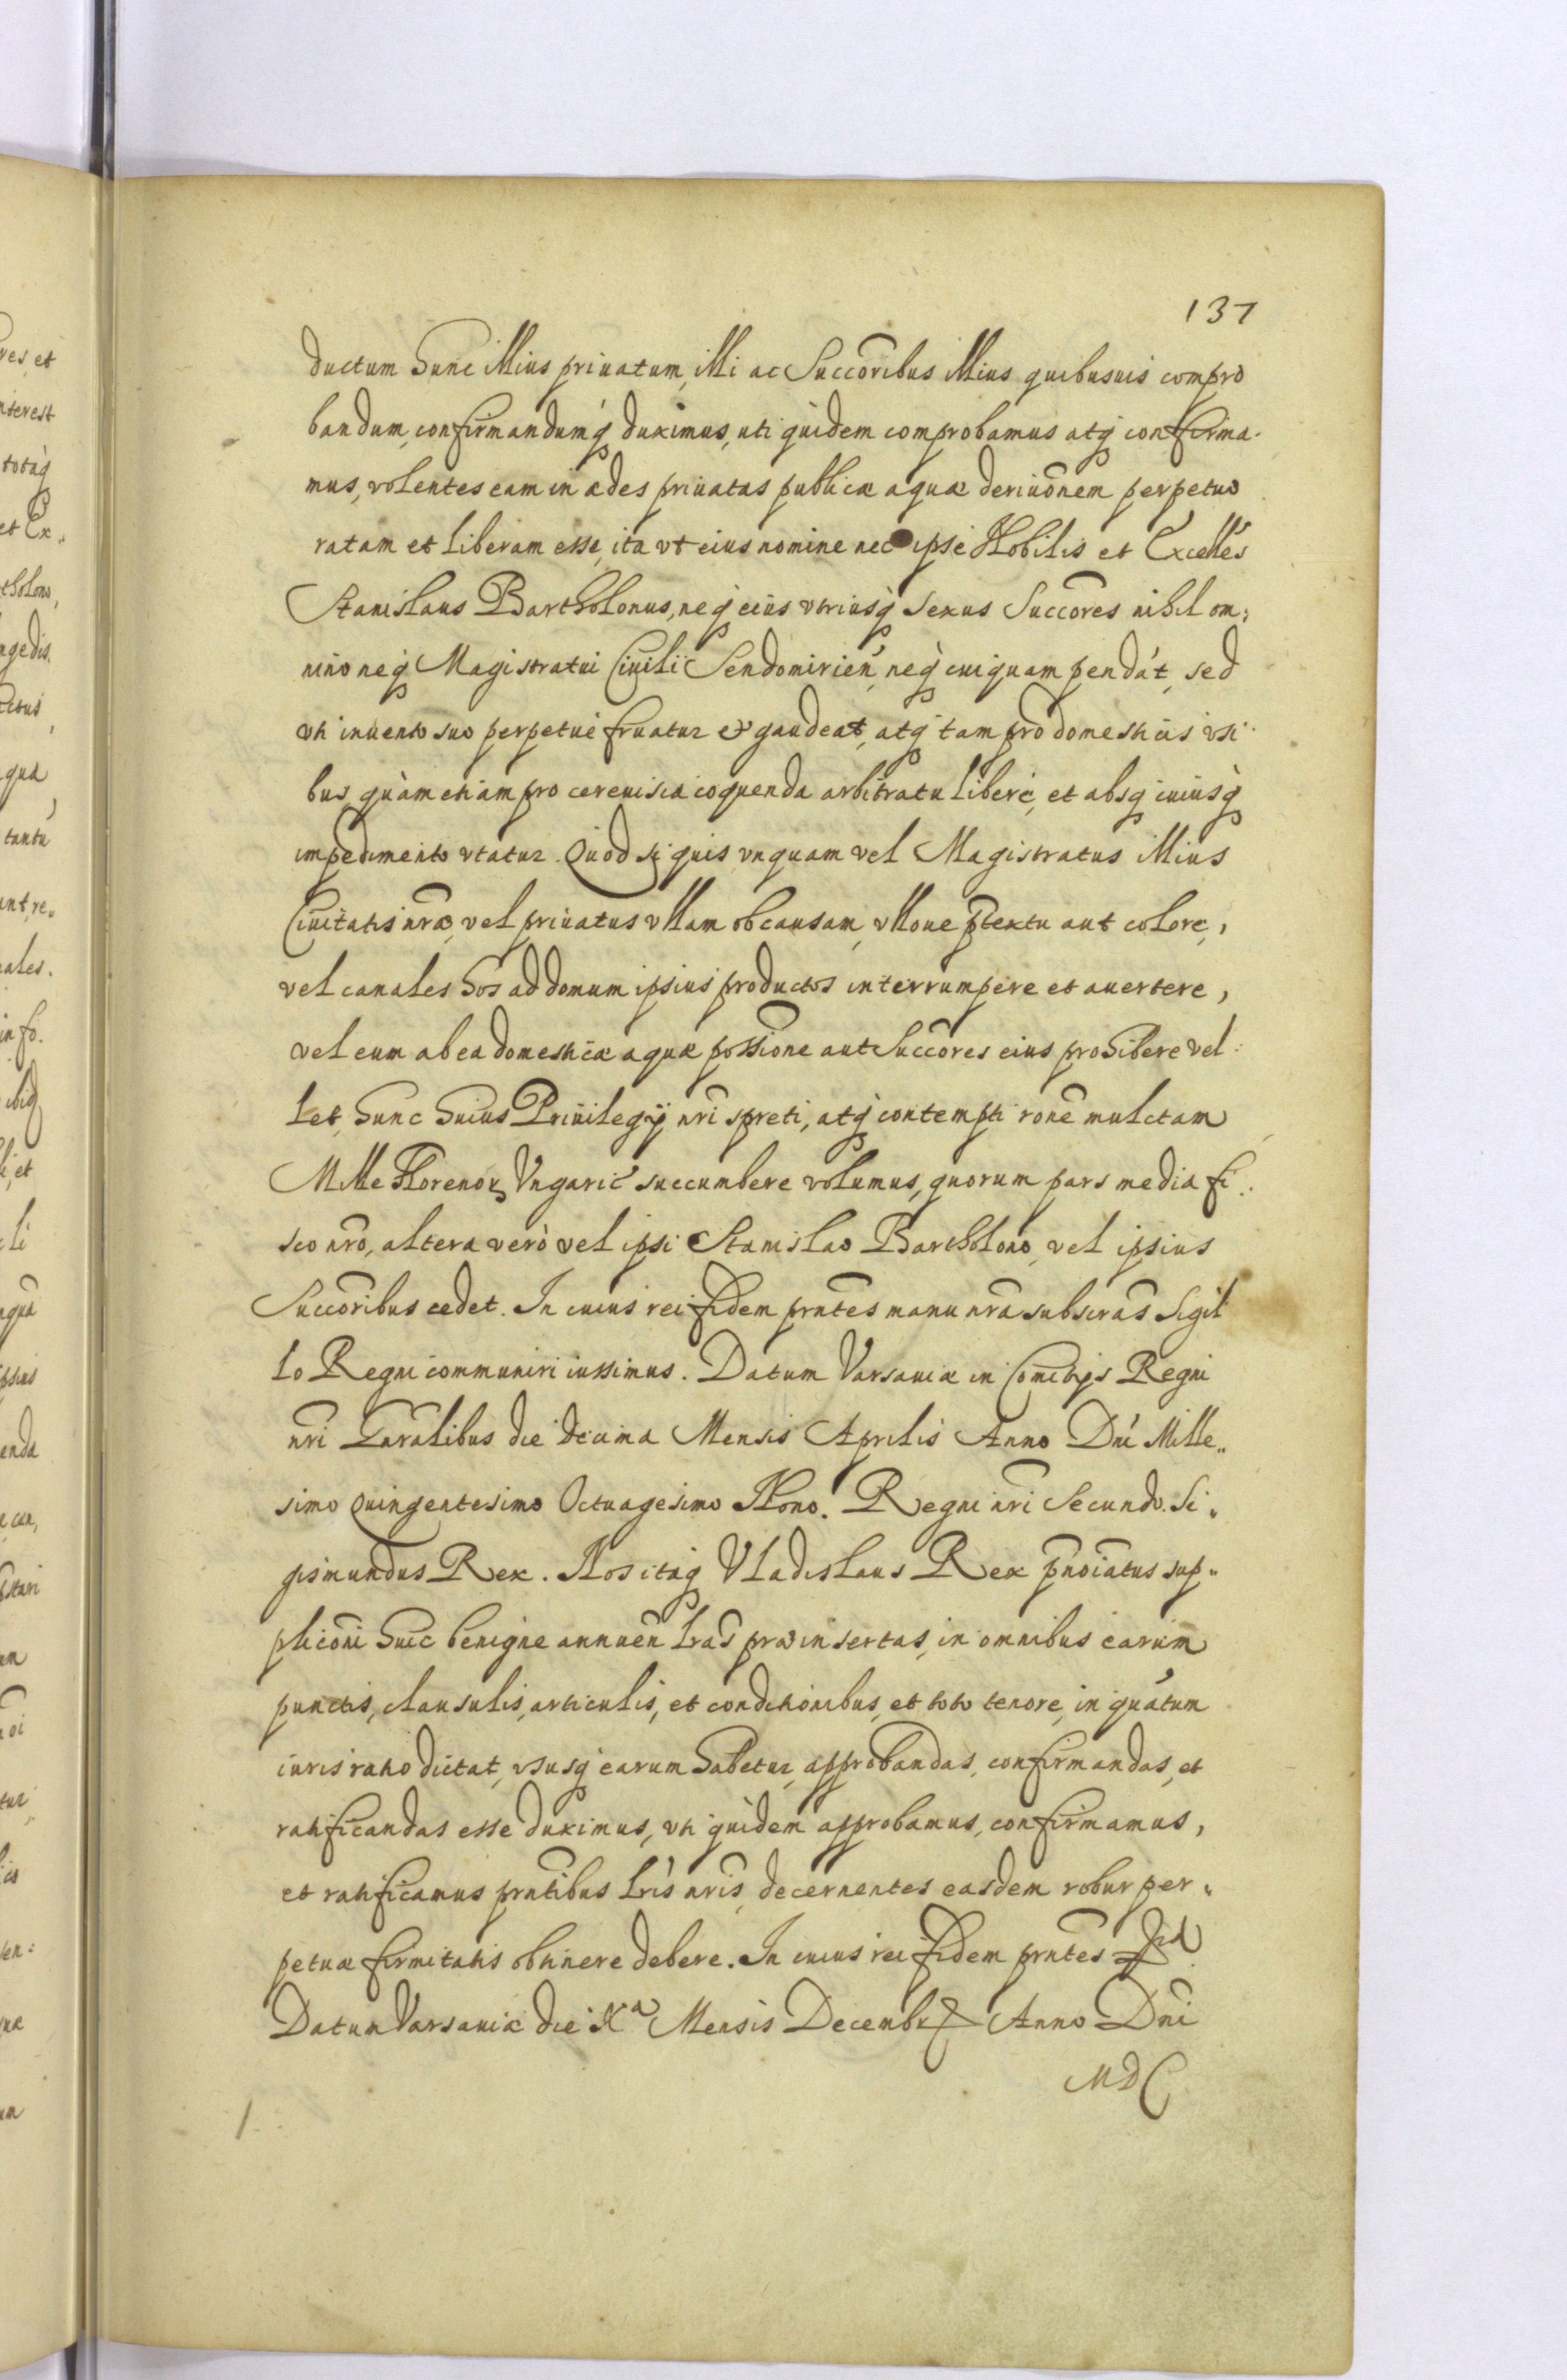 137
ductum hunc illius priuatum, illi ac Succoribus illius quibusuis compro
bandum, confirmandumq́ duximus, uti quidem comprobamus atq́ confirma-
mus, volentes eam in ædes priuatas publicæ aquæ deriuõnem perpetuo
ratam et liberam esse, ita vt eius nomine nec ipse Nobilis et Excelleś
Stanislaus Bartholonus, neq́ eius vtriusq́ sexus Succores nihil om:
nino neq́ Magistratui Ciuili Sendomirień, neq́ cuiquam pendát, sed
vti inuento suo perpetue fruatur et gaudeat, atq́ tam pro domesticis vsi
bus, quàm etiam pro ceruisia coquenda arbitratu libere, et absq́ cuiusq́
impedimento vtatur. Quod si quis vnquam vel Magistratus illius
Ciuitatis nræ, vel priuatus vllam ob causam, vlloue ptextu aut colore,
vel canales hos ad domum ipsius productos interrumpere et auertere,
vel eum ab ea domesticæ aquæ possione aut Succores eius prohibere vel:
let, hunc huius Priuilegij nri spreti, atq́ contempti rone mulctam
Mille Florenoꝝ Vngaric̃ succumbere volumus, quorum pars media fi..
sco nro, altera verò vel ipsi Stanislao Bartholono, vel ipsius
Succoribus cedet. In cuius rei fidem prntes manu nra subscras Sigil
lo Regni communiri iussimus. Datum Varsauiæ in Comitijs Regni
nri Gnralibus die decima Mensis Aprilis Anno Dni Mille„
simo Quingentesimo Octuagesimo Nono. Regni nri Secundo. Si„
gismundus Rex. Nos itaq́ Vladislaus Rex pnoiatus sup„
pliconi huic benigne annueñ lras præinsertas, in omnibus earum
punctis, clausulis, articulis, et conditionibus, et toto tenore, in quátum
iuris ratio dictat, vsusq́ earum habetur, approbandas, confirmandas, et
ratificandas esse duximus, vti quidem approbamus, confirmamus,
et ratificamus prntibus lris nris, decernentes easdem robur per„
petuæ firmitatis obtinere debere. In cuius rei fidem prntes
Datum Varsauiæ die Xᵃ Mensis Decembr Anno Dni
MDC